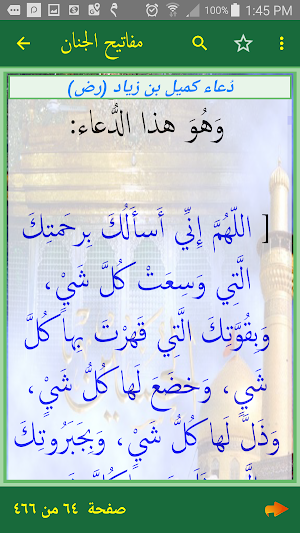 1:45 PM
مفاتيح الجنان
دُعاء كميل بن زياد (رض)
وَهُوَ هذا الدُّعاء:
[ اَللّهُمَّ اِنّي أَسأَلُكَ بِرحَمتِكَ
الَّتي وَسِعَتْ كُلَّ شَيْءٍ،
وَبِقُوَّتِكَ الَّتي قَهَرْتَ بِها كُلَّ
شَيءٍ، وَخضَعَ لَها كُلُّ شَيْءٍ،
وَذَلَّ لَها كُلُّ شَيْءٍ، وَبِجَبَرُوتِكَ
صفحة ٦٤ من ٤٦٦